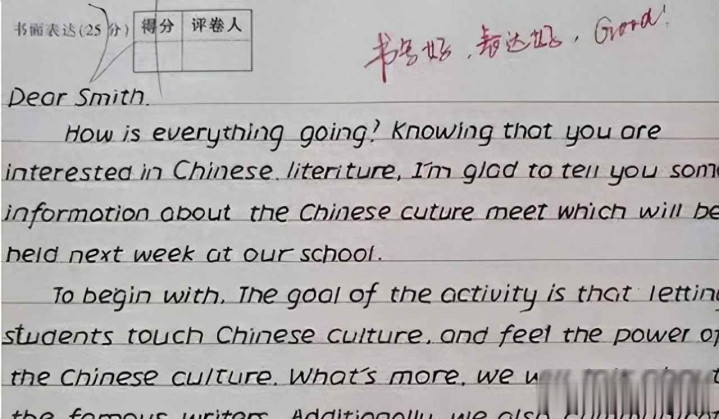 书面表达(25分)
得分 评卷人
书写好，表达好，Good!
Dear Smith.
How is everything going? Knowing that you are
interested in Chinese literiture, I'm glad to tell you som
information about the Chinese cuture meet which will be
held next week at our school.
To begin with, The goal of the activity is that letting
students touch Chinese culture, and feel the power of
the Chinese culture. What's more, we
the famous writers. Additionally, we also